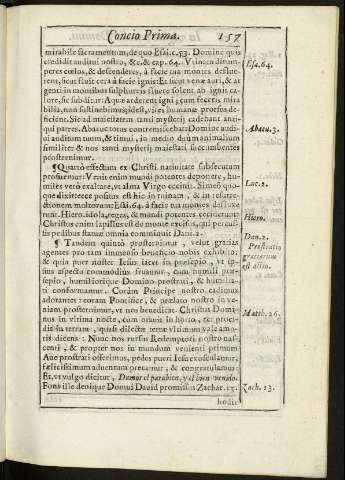 Concio Prima. 157
mirabile sacramentum, de quo Esai. c. 53. Domine quis
credidit auditui nostro, &c, & cap. 64. Vtinam dirum-
peres cœlos, & descenderes, à facie tua montes deflue-
rent, sicut si cera à facie ignis: Et sicut
genti in montibus sulphuris fluere solent ab ignis ca-
lore, sic subditur. Aquæ arderent igni; cum feceris mira-
bilia, non sustinebimus
ficient. Sic ad maiestatem tanti mysterij cadebant anti-
qui patres. Abacuc totus contremiscebat: Domine audi-
ui auditum tuum, & timui, in medio duûm animalium
similiter & nos tanti mysterij maiestati succumbentes
prosternimur.
¶ Quartò effectum ex Christi natiuitate subsecutum
profitemur: Venit enim mundi potentes deponere, hu-
miles verò exaltare, vt alma Virgo cecinit. Simeó quo-
que dixit: ecce positus est hic in ruinam, & in resurre-
ctionem multorum: Esai. 64. à facie tua montes defluxe-
runt. Hiero. idola, reges, & mundi potentes ceciderunt:
Christus enim lapillus est de monte excisus, qui percus-
sis pedibus statuæ omnia comminuit Dani. 2.
¶ Tandem quintò prosternimur, velut gratias
agentes pro tam immenso beneficio nobis exhibito;
& quia puer noster Iesus iacet in præsepio, vt ip-
sius aspectu commodius fruamur, cum humili præ-
sepio, humiliorique Domino prostrati, & humilia-
ti conformamur. Coràm Principe nostro cadimus
adorantes: coram Pontifice, & prælato nostro in ve-
niam prosternimur, vt nos benedicat. Christus Domi-
nus in vltima nocte, cum oraret in horto, ter proci-
dit in terram, quasi dilectæ terræ vltimum vale amo-
ris dicens: Nunc nos rursus Redemptori nostro nas-
centi, & propter nos in mundum venienti primum
Aue prostrati offerimus, pedes pueri Iesu exosculamur,
fælicissimum aduentum precamur, & congratulamur:
Et, vt vulgo dicitur, Damos el parabien, y el bien venido.
Fons ille denique Domui Dauid promissus Zachar. 13.
hodie
Esa. 64.
Abacu. 3.
Luc. 2.
Hiero.
Dan. 2.
Prostratio
gratiarum
est actio.
Matth. 26.
Zach. 13.